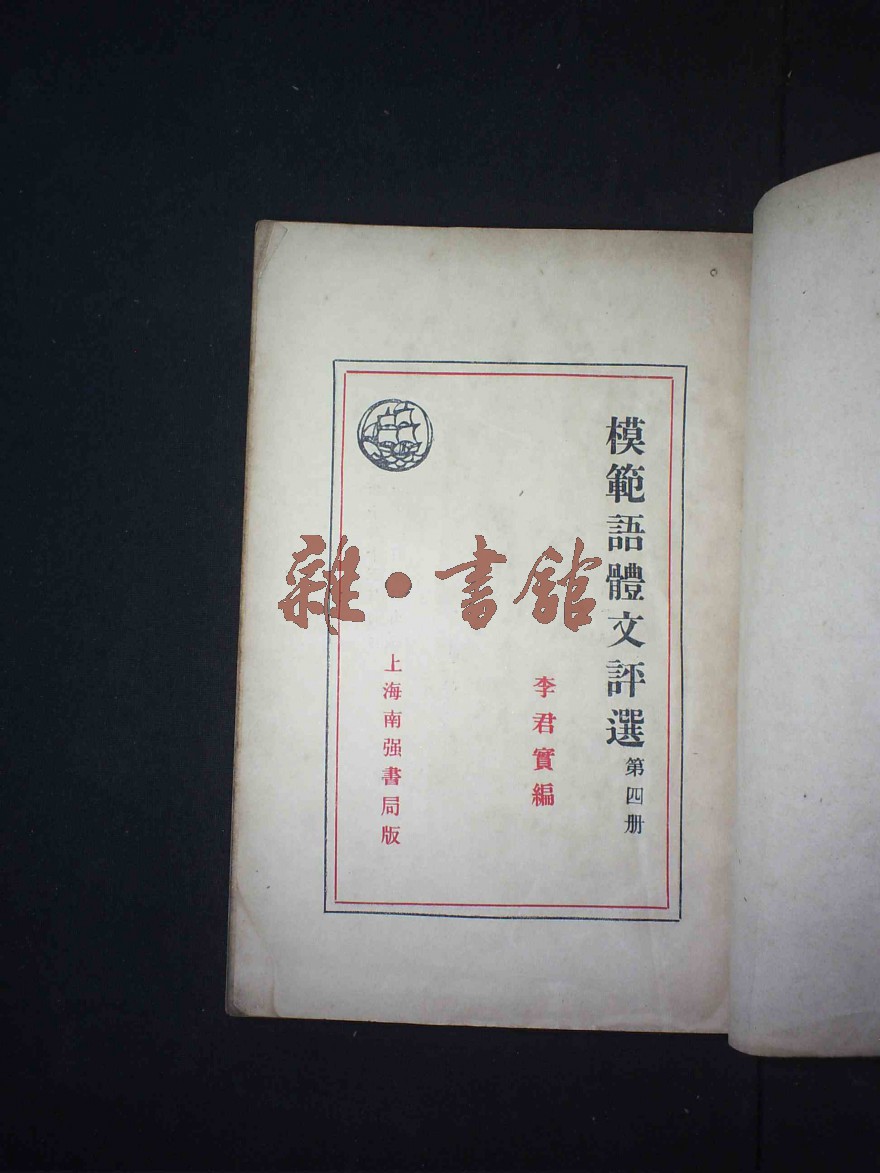 模範語體文評選 第四册
李君實編
上海南强書局版
雜·書館